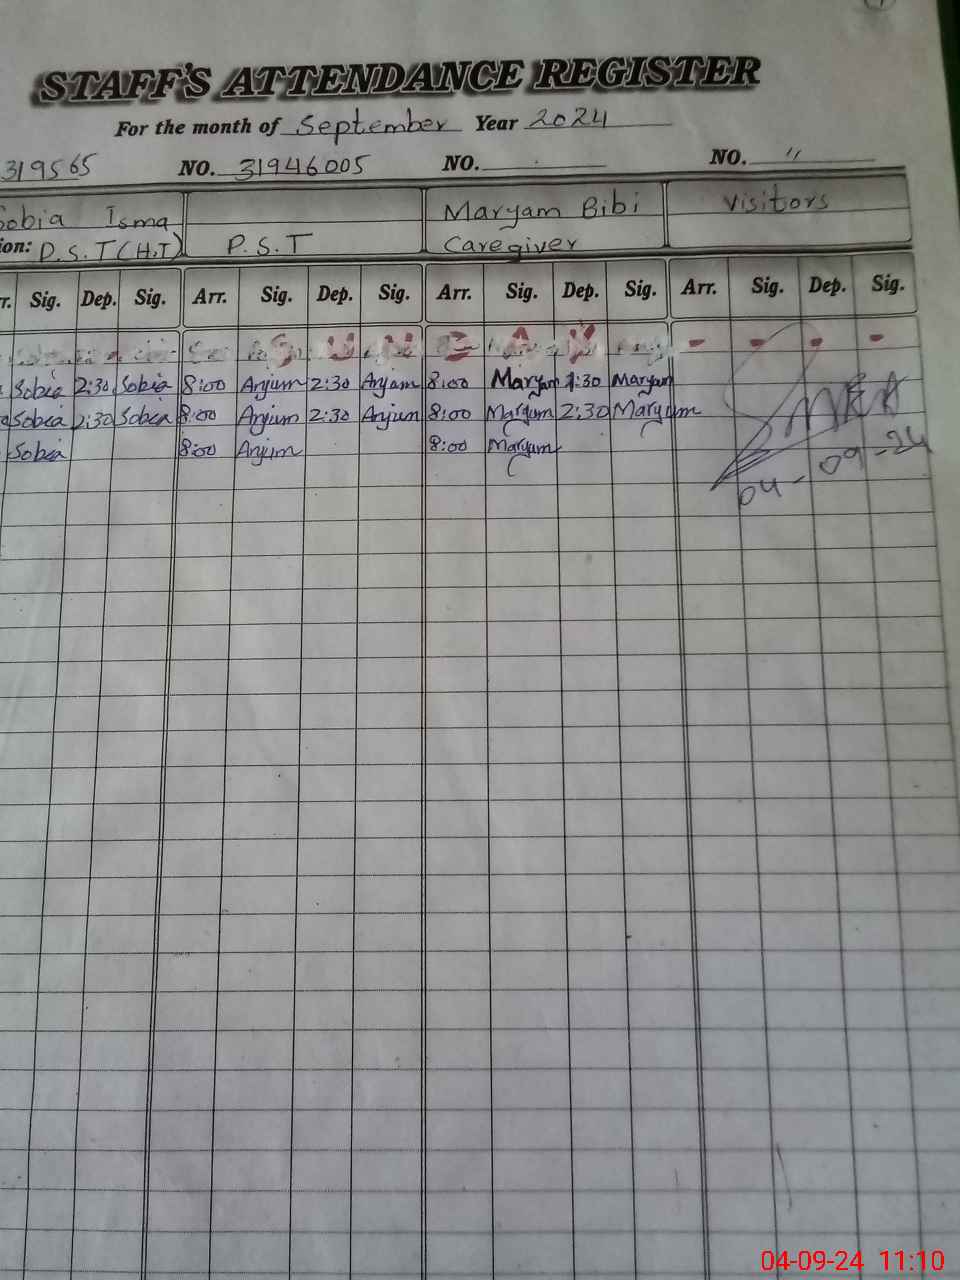 STAFF'S ATTENDANCE REGISTER
For the month of September Year 2024
319565 NO. 31946005 NO. NO. "
Sobia Isma Maryam Bibi Visitors
ion: P.S.T (H.T) P.S.T Caregiver
r. Sig. Dep. Sig. Arr. Sig. Dep. Sig. Arr. Sig. Dep. Sig. Arr. Sig. Dep. Sig.
S U N D A Y - - - -
Sobia 2:30 Sobia 8:00 Anjum 2:30 Anjum 8:00 Maryam 1:30 Maryam
Sobia 2:30 Sobia 8:00 Anjum 2:30 Anjum 8:00 Maryam 2:30 Maryam
Sobia 8:00 Anjum 8:00 Maryam
04-09-24
04-09-24 11:10